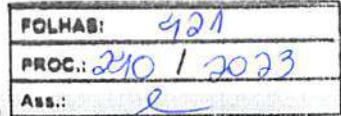 FOLHAS: 421
PROC.: 240 / 2023
Ass.: